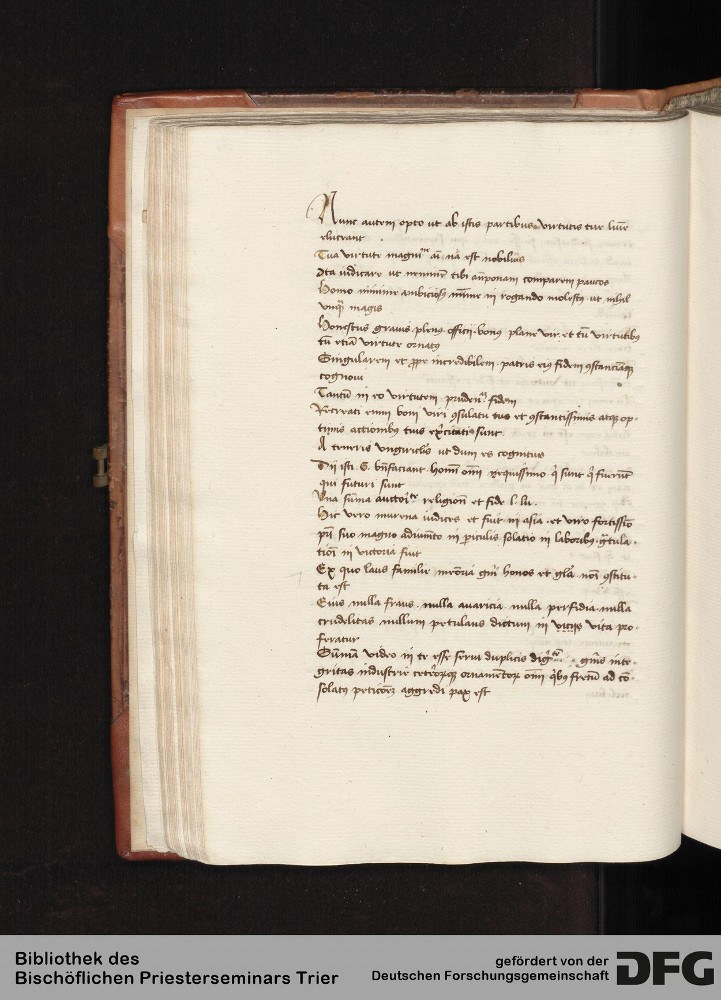 Nunc autem opto ut ab istis partibus virtutis tue litere
eluceant
Tua virtute magnitu ai na est nobilius
Ita iudicare ut neminem tibi anponam comparem paucos
Homo minime ambiciosus minime in rogando molestus ut nihil
unquam magis
Honestus gravis plenus officii bonus plane vir et cum virtutibus
tum etiam virtute ornatus
Singularem et prope incredibilem patris eius fidem constanciamque
cognovi
Tantum in eo virtutem pruden fidem
Recreati enim boni viri consulatu tuo et constantissimis atque op-
timis actionibus tuis excitati sunt
A teneris unguiculis ut dum es cognitus
Dii isti G. benefaciant homini omnium nequissimo qui sunt qui fuerunt
qui futuri sunt
Una summa auctori religione et fide l. lu.
Hic vero murena iudices et fuit in asia et viro fortissimo
patri suo magno adiumento in periculis solatio in laboribus gratula-
tioni in victoria fuit
Ex quo laus familie memoria generi honos et gloria nomini constitu-
ta est
Eius nulla fraus nulla avaricia nulla perfidia nulla
crudelitas nullum petulans dictum in vita pro-
feratur
Summam video in te esse servi duplicis dignita generis inte-
gritas industrie ceterorumque ornamentorum omnium quibus fretum ad con-
solatus peticionem aggredi pax est
Bibliothek des
Bischöflichen Priesterseminars Trier
gefördert von der
Deutschen Forschungsgemeinschaft
DFG